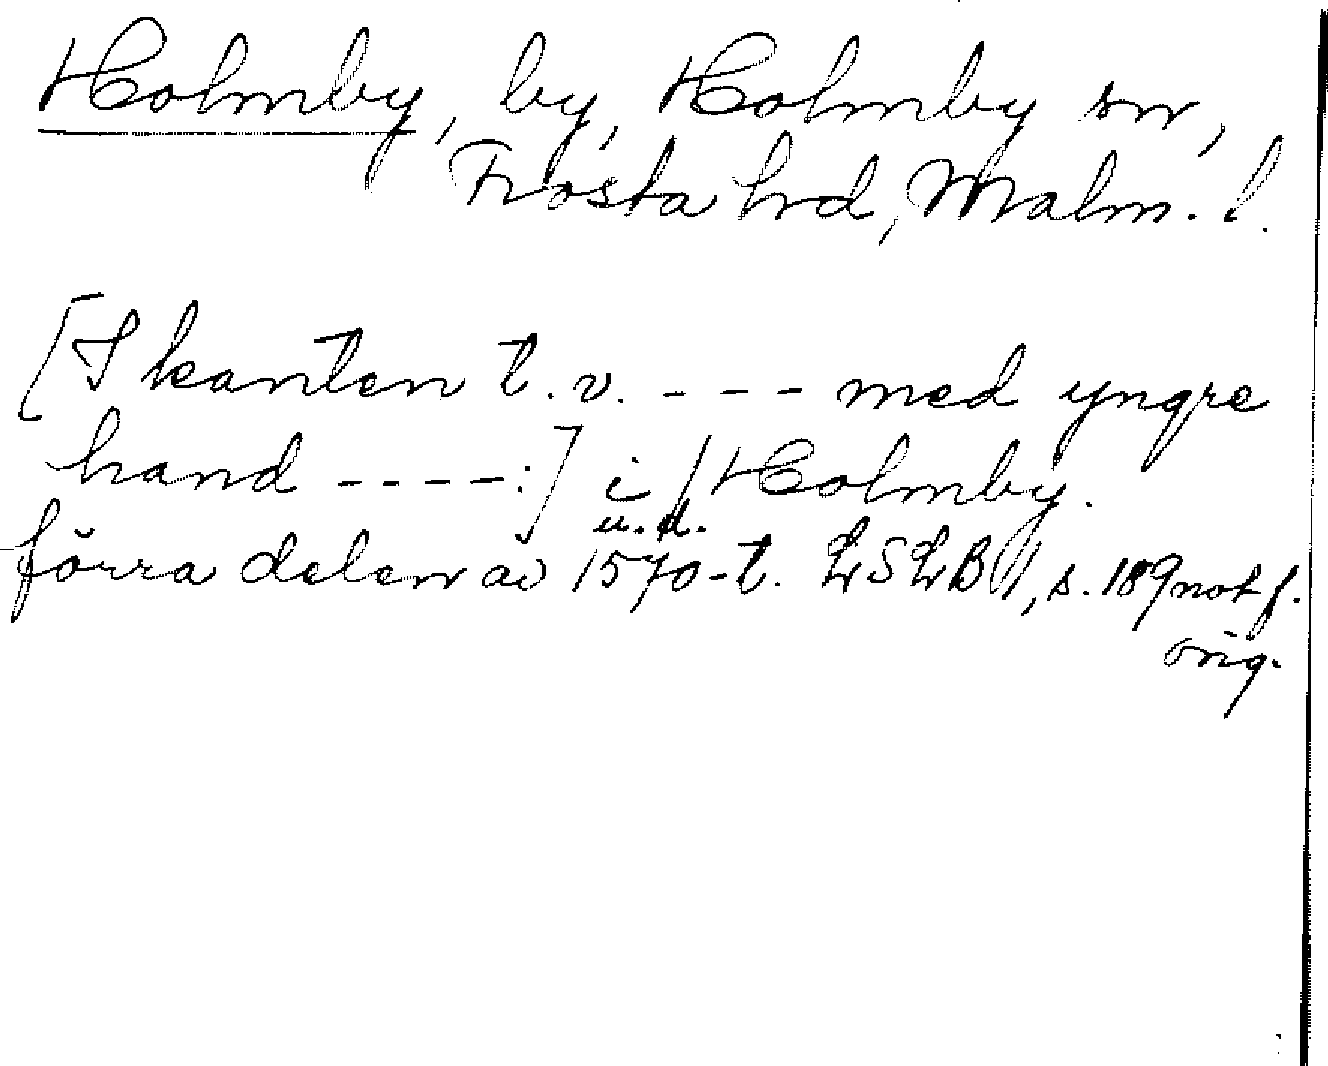 Holmby, by, Holmby sn,
Frosta hrd, Malm. l.
[I kanten t.v. - - - med yngre
hand - - - - :] i / Holmby.
u. d.
förra delen av 1570-t. LSLB I, s. 189 not f.
orig.